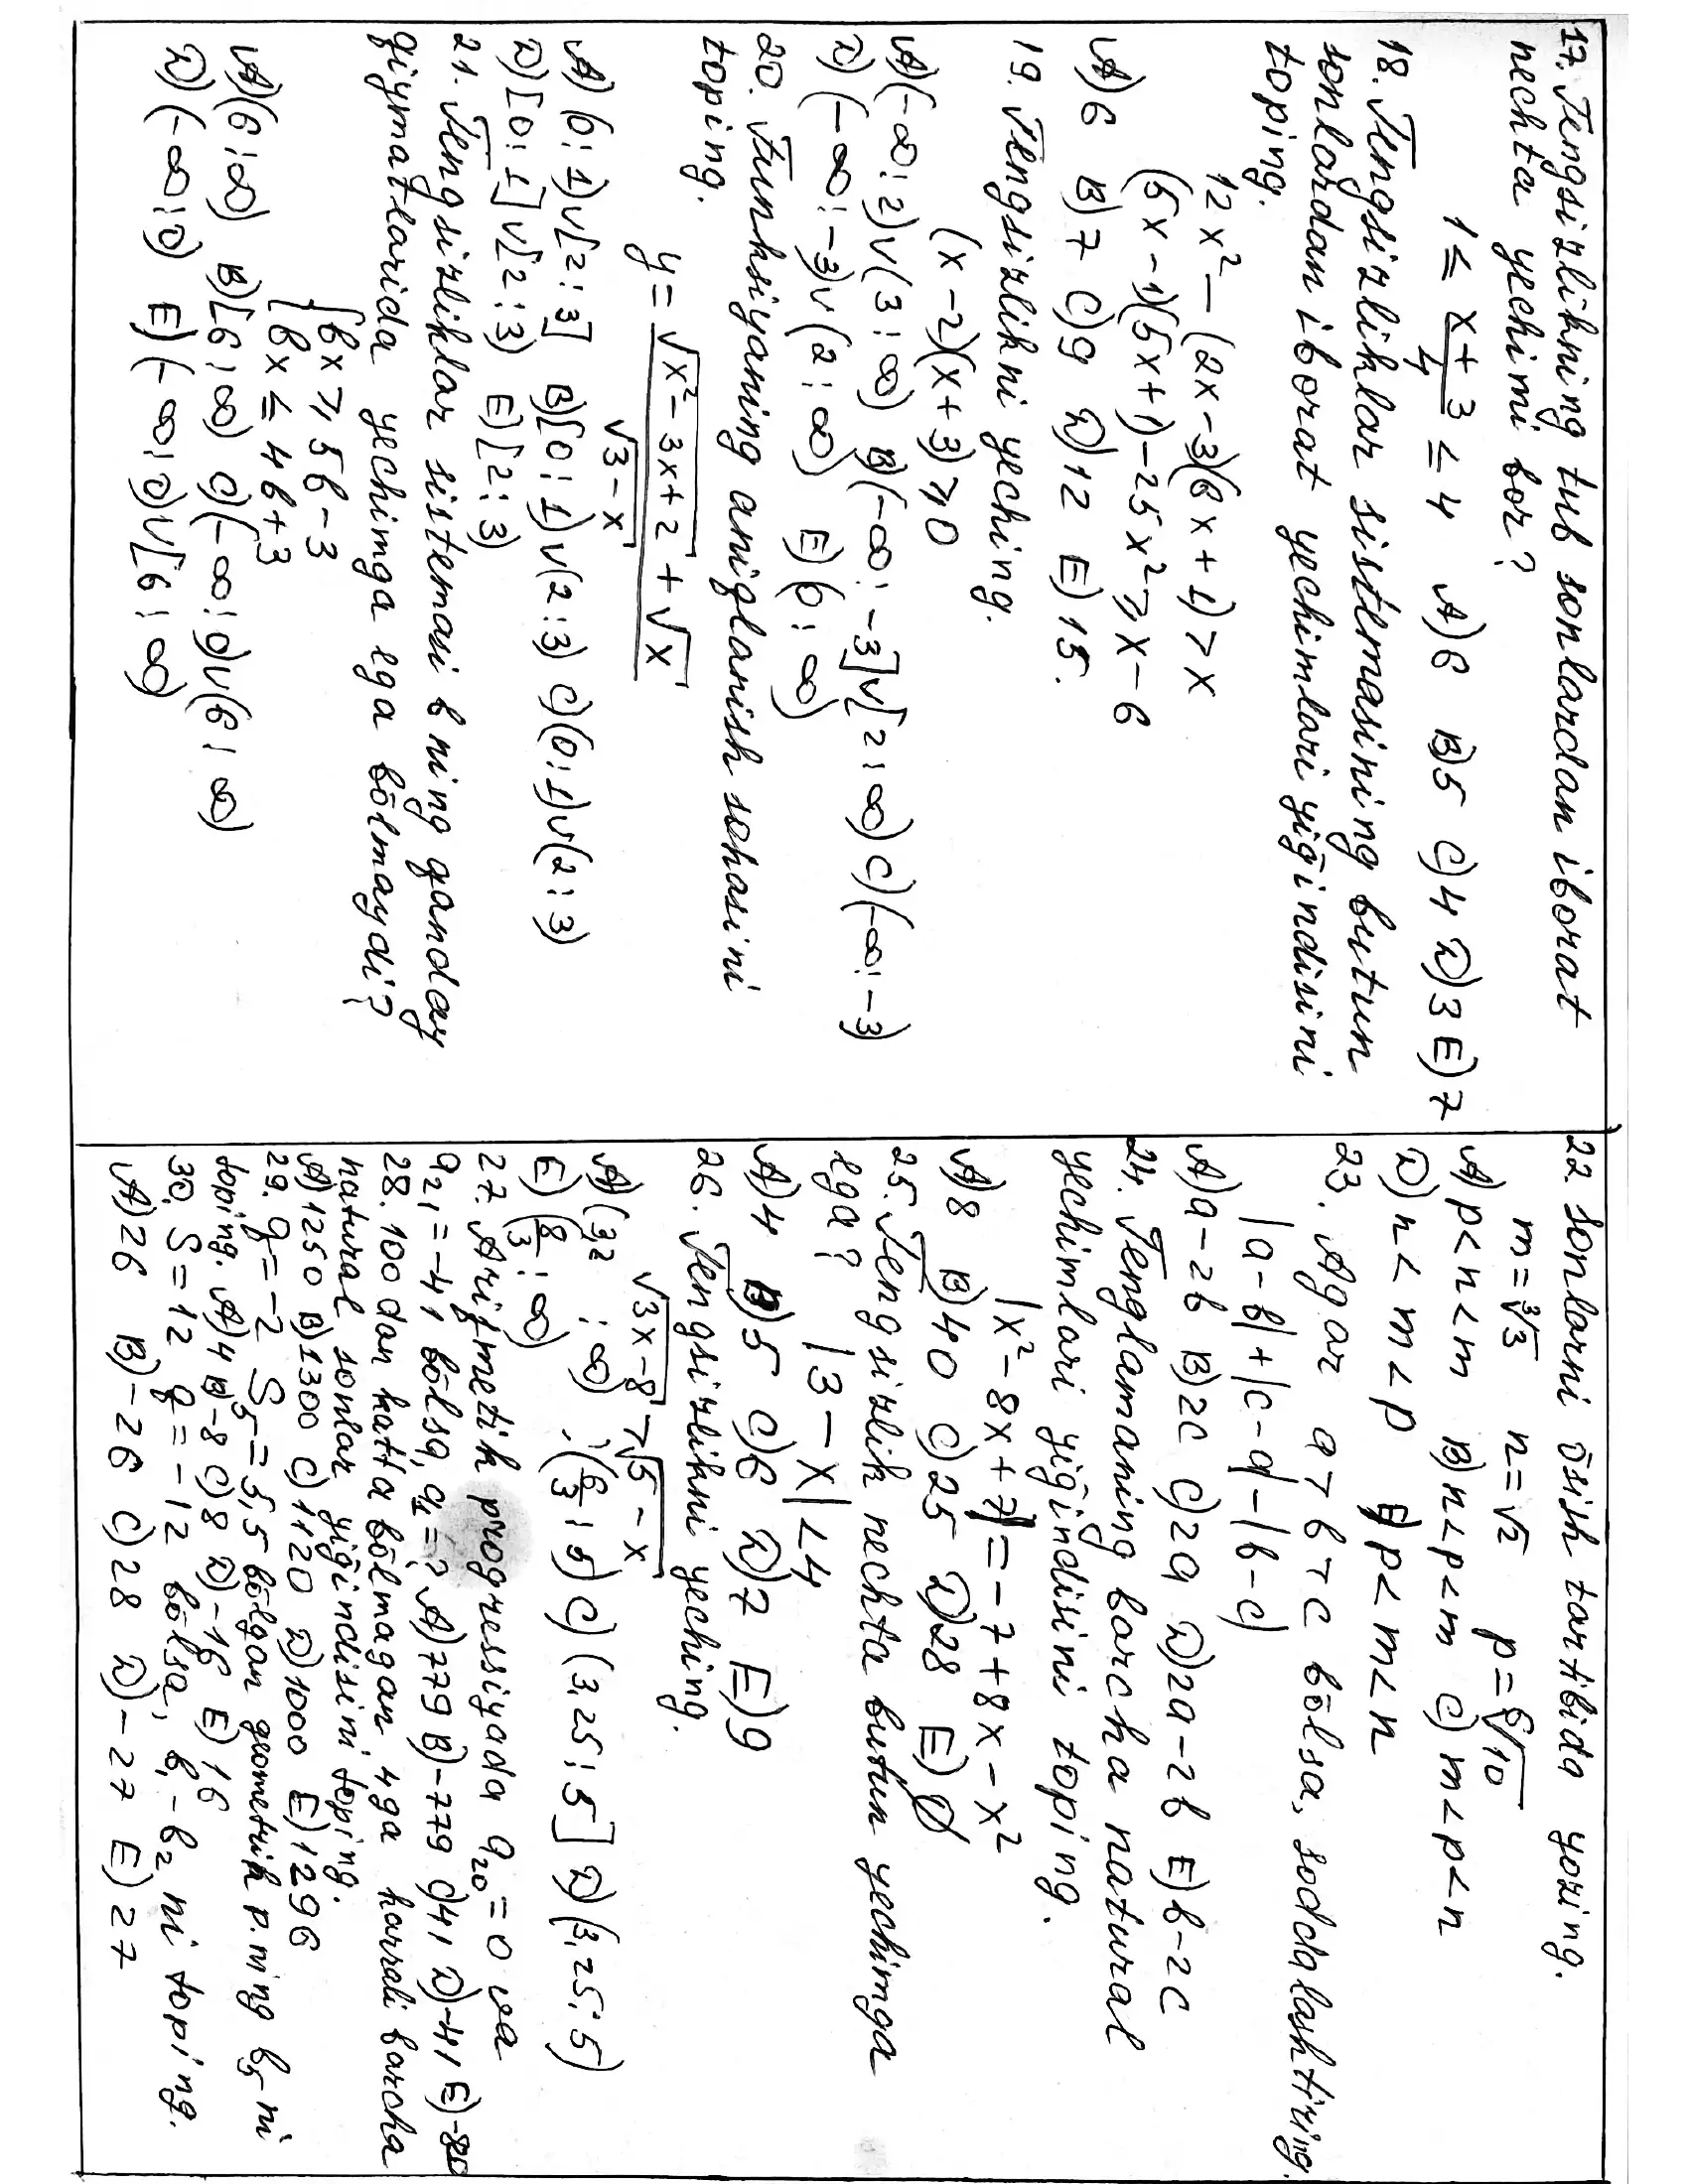 17. Tengsizlikning tub sonlardan iborat
nechta yechimi bor?
1 ≤ x+3/4 ≤ 4 A) 6 B) 5 C) 4 D) 3 E) 7
18. Tengsizliklar sistemasining butun
sonlardan iborat yechimlari yig̃indisini
toping.
12x² - (2x-3)(6x+1) > x
(5x-1)(5x+1) - 25x² ≥ x-6
A) 6 B) 7 C) 9 D) 12 E) 15.
19. Tengsizlikni yeching.
(x-2)(x+3) ≥ 0
A) (-∞; 2) ∨ (3; ∞) B) (-∞; -3] ∨ [2; ∞) C) (-∞; -3)
D) (-∞; -3) ∨ (2; ∞) E) (6; ∞)
20. Funksiyaning aniqlanish sohasini
toping.
y = √x²-3x+2 + √x / √3-x
A) (0; 1) ∨ [2; 3] B) [0; 1) ∨ (2; 3) C) (0; 1) ∨ (2; 3)
D) [0; 1] ∨ [2; 3) E) [2; 3)
21. Tengsizliklar sistemasi b ning qanday
qiymatlarida yechimga ega bõlmaydi?
{ bx ≥ 5b-3
bx ≤ 4b+3
A) (6; ∞) B) [6; ∞) C) (-∞; 0) ∨ (6; ∞)
D) (-∞; 0) E) (-∞; 0) ∨ [6; ∞)
22. Sonlarni õsish tartibida yozing.
m = ³√3 n = √2 p = ⁶√10
A) p<n<m B) n<p<m C) m<p<n
D) n<m<p E) p<m<n
23. Agar a>b>c bõlsa, soddalashtiring.
|a-b|+|c-a|-|b-c|
A) a-2b B) 2c C) 2a D) 2a-2b E) b-2c
24. Tenglamaning barcha natural
yechimlari yig̃indisini toping.
|x²-8x+7| = -7+8x-x²
A) 8 B) 40 C) 25 D) 28 E) ∅
25. Tengsizlik nechta butun yechimga
ega?
|3-x| < 4
A) 4 B) 5 C) 6 D) 7 E) 9
26. Tengsizlikni yeching.
√3x-8 > √5-x
A) (3,2 ; ∞) ; (6/3 ; 5) C) (3,25; 5] D) (3,25; 5)
E) (8/3 ; ∞)
27. Arifmetik progressiyada a₂₀ = 0 va
a₂₁ = -41 bõlsa, a₁ = ? A) 779 B) -779 C) 41 D) -41 E) -820
28. 100 dan katta bõlmagan 4ga karrali barcha
natural sonlar yig̃indisini toping.
A) 1250 B) 1300 C) 1120 D) 1000 E) 1296
29. q = -2 S₅ = 5,5 bõlgan geometrik p.ning b₅ ni
toping. A) 4 B) -8 C) 8 D) -16 E) 16
30. S = 12 q = -12 bõlsa, b₁ - b₂ ni toping.
A) 26 B) -26 C) 28 D) -27 E) 27